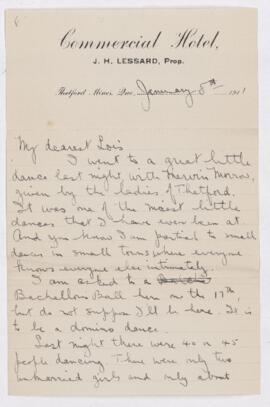 Commercial Hotel,
J. H. LESSARD, Prop.
Thetford Mines, Que. January 5th 1911
My dearest Lois
I went to a great little
dance last night with Merwin Morrow,
given by the ladies of Thetford.
It was one of the nicest little
dances that I have ever been at.
And you know I am partial to small
dances in small towns where everyone
knows everyone else intimately.
I am asked to a
Bachellors Ball here on the 17th,
but do not suppose I'll be here. It is
to be a domino dance.
Last night there were 40 or 45
people dancing. There were only two
unmarried girls and only about